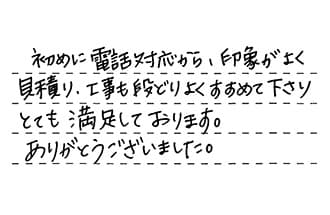 初めに電話対応から、印象がよく
見積り、工事も段どりよくすすめて下さり
とても満足しております。
ありがとうございました。